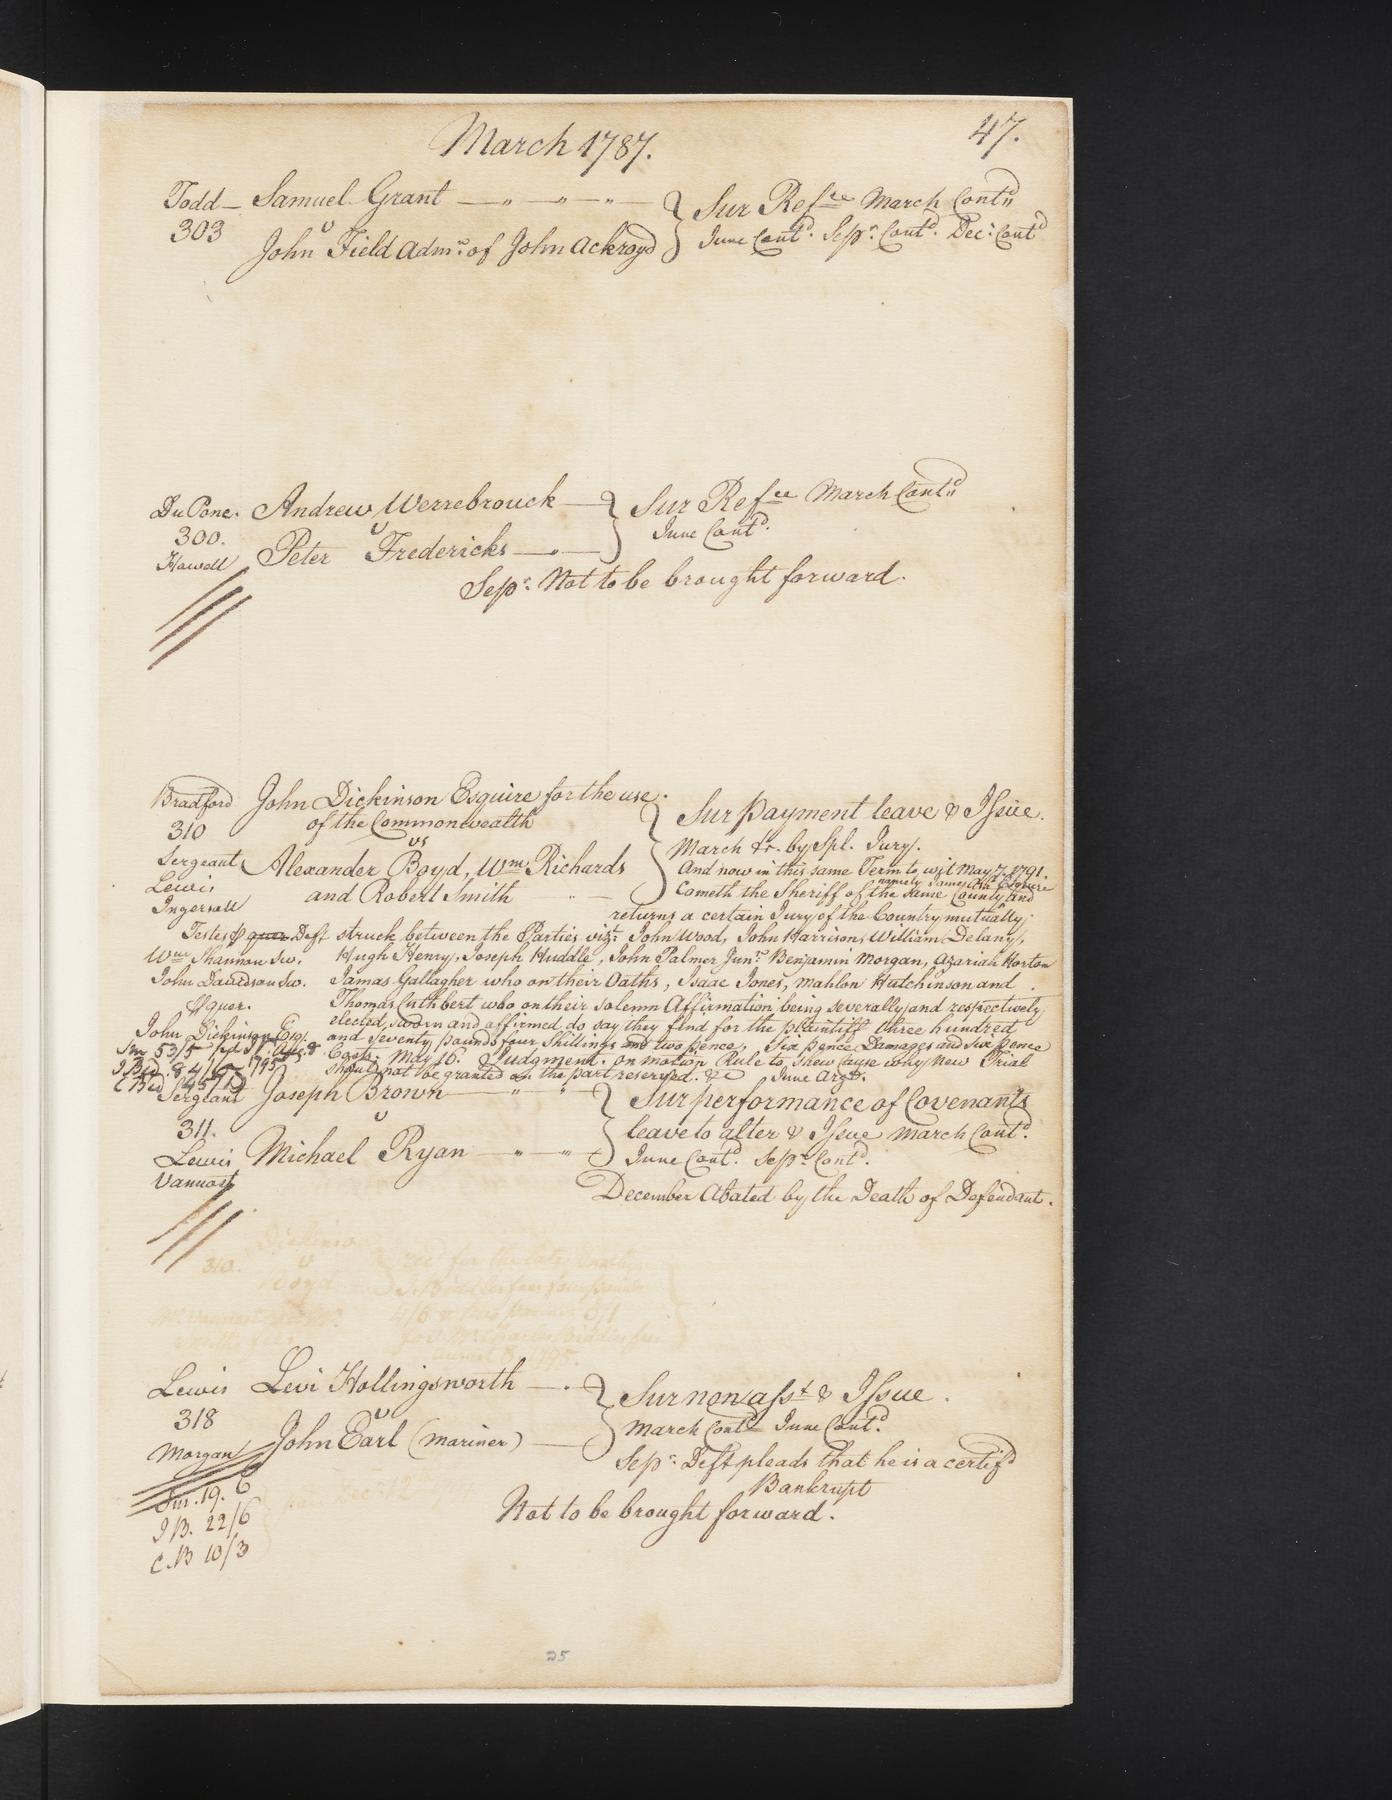 March 1787.
47.
Todd — Samuel Grant — " — " — " — Sur Ref.ee March Cont.d
303 v
John Field Adm.r of John Ackroyd June Cont.d Sep.r Cont.d Dec.r Cont.d
DuPone. Andrew Werrebrouck — Sur Ref.ee March Cont.d
300. v June Cont.d
Howell Peter Fredericks — " —
Sep.r Not to be brought forward.
Bradford John Dickinson Esquire for the use
310 of the Commonwealth Sur payment leave & Issue.
vs March tr. by Spl. Jury.
Sergeant Alexander Boyd, Wm Richards And now in this same Term to wit May 7. 1791.
Lewis and Robert Smith Cometh the Sheriff of the same County and
namely James Esquire
Ingersoll returns a certain Jury of the Country mutually
Testes quer Deft struck between the Parties vizt. John Wood, John Harrison, William Delany,
Wm Shannon Sw. Hugh Henry, Joseph Huddle, John Palmer Junr. Benjamin Morgan, Azariah Horton
John Davidson Sw. Jamas Gallagher who on their Oaths, Isaac Jones, Mahlon Hutchinson and
quer. Thomas Cuthbert who on their solemn Affirmation being severally and respectively
John Dickinson Esq. elected, sworn and affirmed do say they find for the plaintiff three hundred
and seventy pounds four Shillings and two pence, Six pence Damages and Six pence
Costs. May 16. Judgment. on motion Rule to shew Cause why New Trial
should not be granted on the part reserved. &c June Argd.
Sergeant Joseph Brown — " — " — Sur performance of Covenants
311. v leave to alter & Issue March Cont.d
Lewis Michael Ryan — " — " — June Cont.d Sep.r Cont.d
Vannost
December Abated by the Death of Defendant.
310. v
Boyd
1795.
Lewis Levi Hollingsworth — . Sur non asst & Issue.
318 v March Cont.d June Cont.d
Morgan John Earl (Mariner) —
Sep.r Deft pleads that he is a certif.d
Bankrupt
Sur. 19. 6
Not to be brought forward.
I B. 22/6
C. B 10/3
25